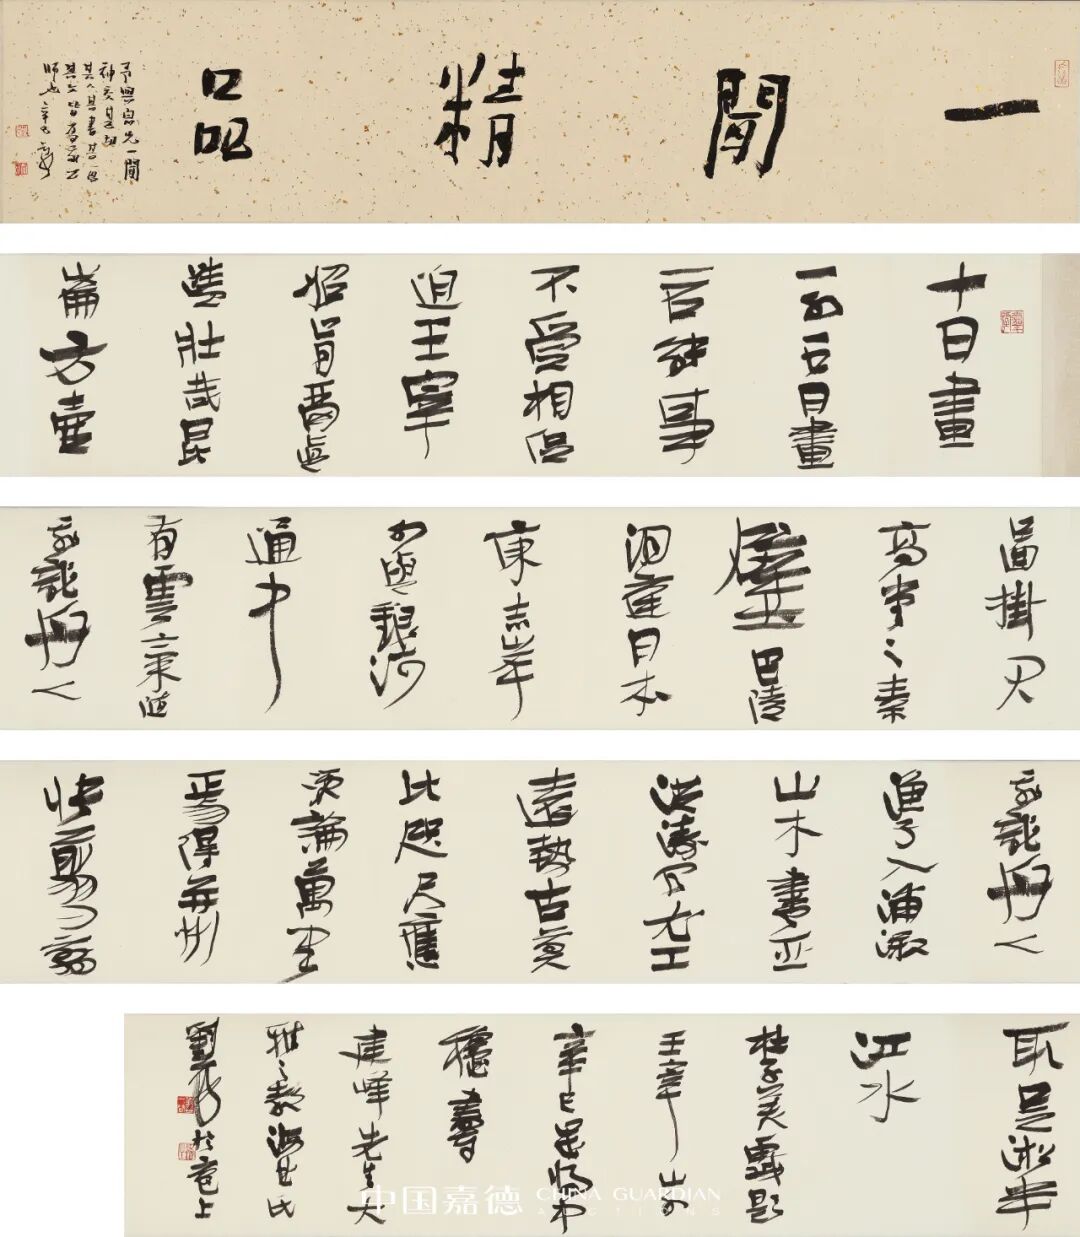 一閒精品
十日畫
一水五日畫
一石能事
不受相促
迫王宰
始肯留真
蹟壯哉昆
崙方壺
圖掛君
高堂之素
壁巴陵
洞庭日本
東赤岸
水與銀河
通中
有雲氣隨
飛龍舟人
飛龍舟人
漁子入浦漵
山木盡亞
洪濤風尤工
遠勢古莫
比咫尺應
須論萬里
焉得并州
快剪刀剪
取吴淞半
江水
杜子美戲題
王宰山水
辛巳
建峰先生大
雅之教
中国嘉德 CHINA GUARDIAN
AUCTIONS